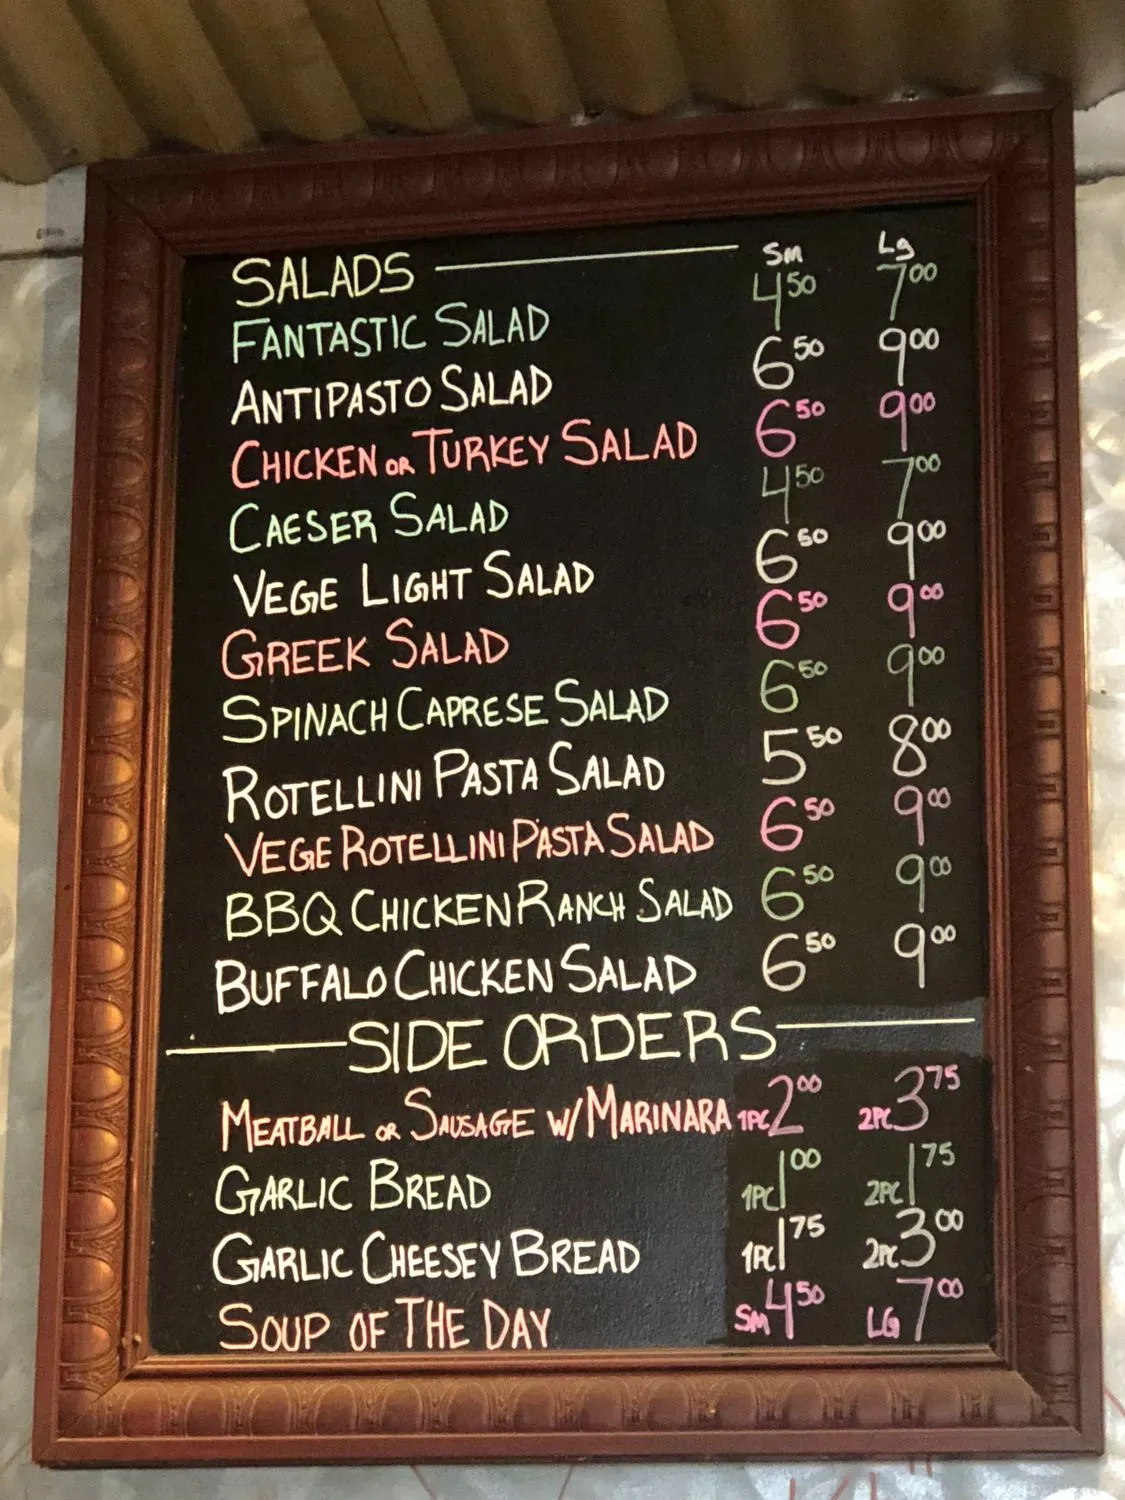 SALADS Sm Lg
FANTASTIC SALAD 4.50 7.00
ANTIPASTO SALAD 6.50 9.00
CHICKEN OR TURKEY SALAD 6.50 9.00
CAESER SALAD 4.50 7.00
VEGE LIGHT SALAD 6.50 9.00
GREEK SALAD 6.50 9.00
SPINACH CAPRESE SALAD 6.50 9.00
ROTELLINI PASTA SALAD 5.50 8.00
VEGE ROTELLINI PASTA SALAD 6.50 9.00
BBQ CHICKEN RANCH SALAD 6.50 9.00
BUFFALO CHICKEN SALAD 6.50 9.00
SIDE ORDERS
MEATBALL OR SAUSAGE W/ MARINARA 1PC 2.00 2PC 3.75
GARLIC BREAD 1PC 1.00 2PC 1.75
GARLIC CHEESEY BREAD 1PC 1.75 2PC 3.00
SOUP OF THE DAY SM 4.50 LG 7.00